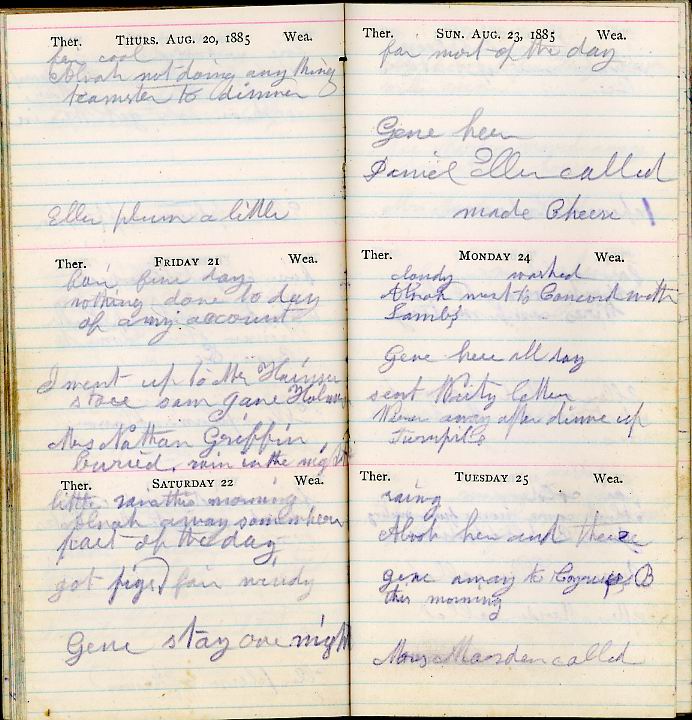 Ther. THURS. AUG. 20, 1885 Wea.
cool
Alvah not doing any thing
teamster to dinner
Ellen plum a little
Ther. FRIDAY 21 Wea.
fair fine day
nothing done to day
of any account
I went up to Mr
store Gene
Mrs Nathan Griffin
buried, rain in the night
Ther. SATURDAY 22 Wea.
little rain this morning
Alvah away somewhere
part of the day
got pigs fair windy
Gene stay one night
Ther. SUN. AUG. 23, 1885 Wea.
fair most of the day
Gene here
Daniel Ellen called
made Cheese
Ther. MONDAY 24 Wea.
cloudy washed
Alvah went to Concord with
Lambs
Gene here all day
sent letter
away after dinner up
Turnpike
Ther. TUESDAY 25 Wea.
rainy
Alvah here and there
gene away to B
this morning
Marsden called